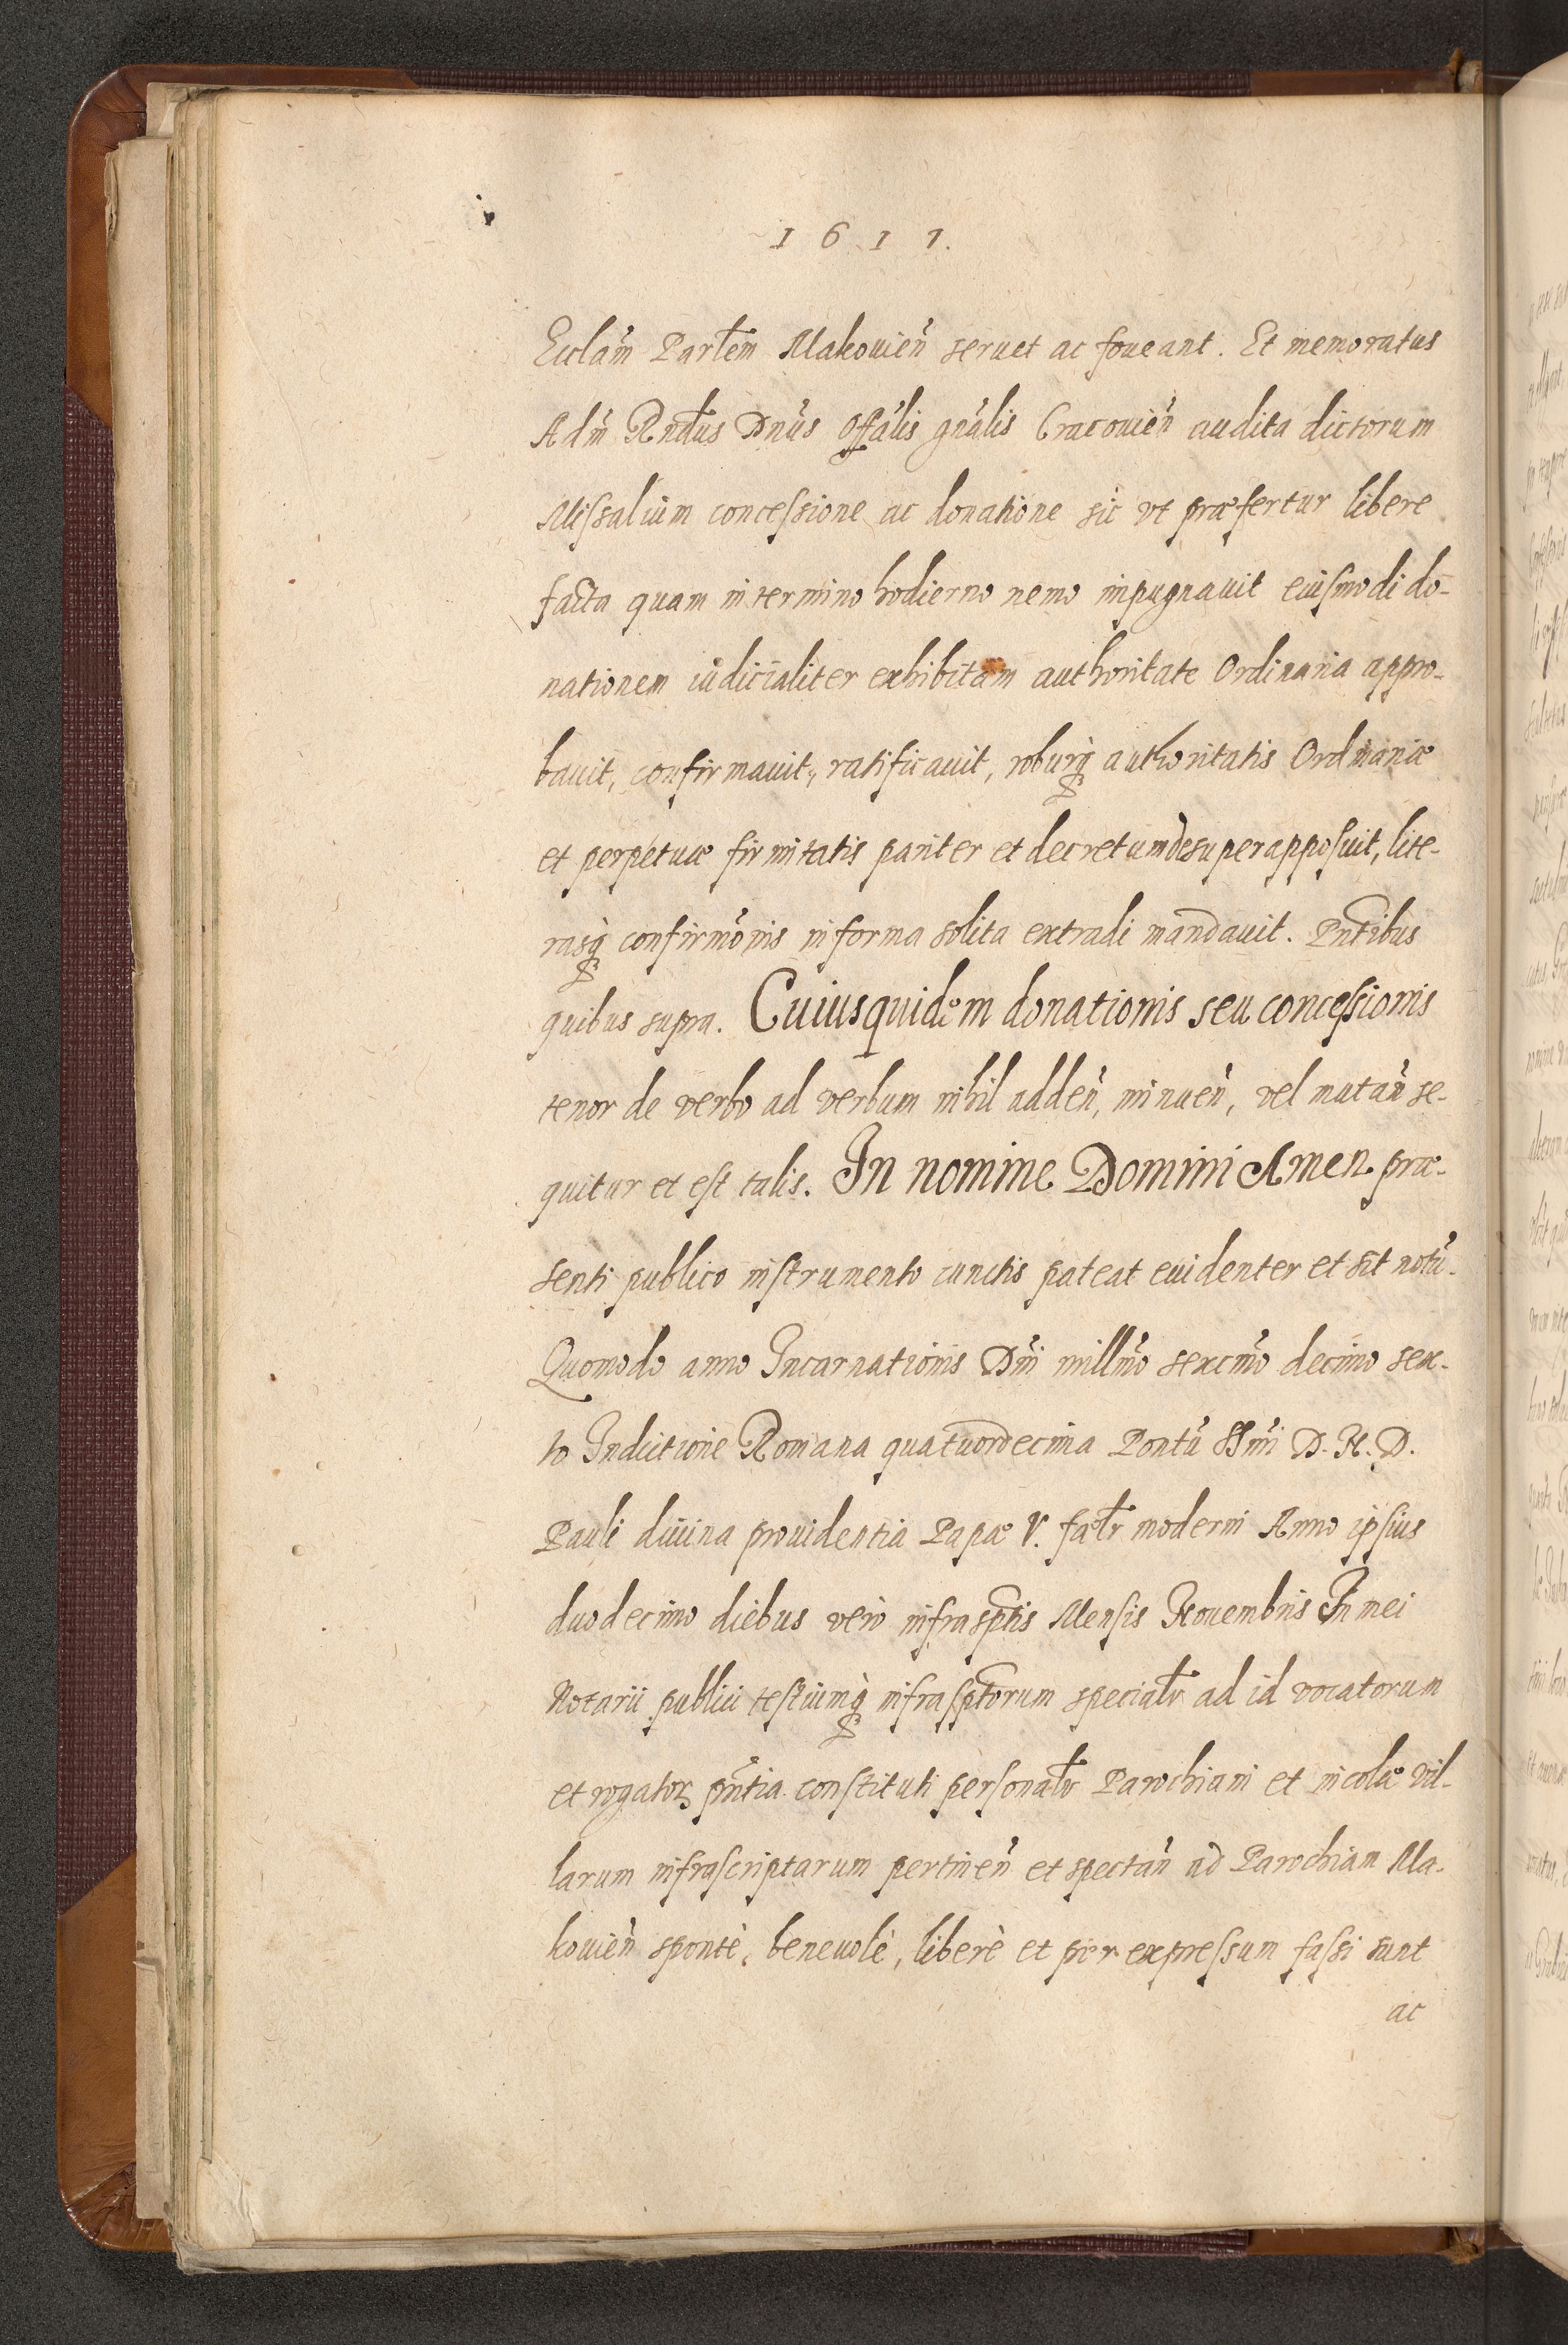 1617.
Eccla͂m Parlem Makouien̄ seruet ac foveant. Et memoratus
Adm̄ Rndus Dnus Offālis gnālis Cracouien̄ audita dictorum
Missalium concessione ac donatione sic vt præfertur libere
facta quam in termino hodierno nemo impugnauit eiusmodi do-
nationem iudicialiter exhibitam authoritate Ordinaria appro-
bauit, confirmauit, ratificauit, roburq̨ authoritatis Ordinariæ
et perpetuæ firmitatis pariter et decretum desuper apposuit, lite-
rasq̨ confirmōnis in forma solita extradi mandauit. Pntibus
quibus supra. Cuius quidem donationis seu concessionis
tenor de verbo ad verbum nihil adden̄, minuen̄, vel mutan̄ se-
quitur et est talis. In nomine Domini Amen præ-
senti publico instrumento cunctis pateat euidenter et sit notū.
Quomodo anno Incarnationis Dn̄i millm̄o sexcm̄o decimo sex-
to Indictione Romana quatuordecima Pontū SSmi D. N. D.
Pauli diuina prouidentia Papæ V. fælr moderni Anno ipsius
duodecimo diebus vero infrasptis Mensis Nouembris In mei
Notarii publici testiumq̨ infrasptorum specialr ad id vocatorum
et rogatoꝝ pn̄tia constituti personalr Parochiani et incolæ vil-
larum infrascriptarum pertinen̄ et spectan̄ ad Parochiam Ma-
kouien̄ spontè, beneuolè, liberè et per expressum fassi sunt
ac